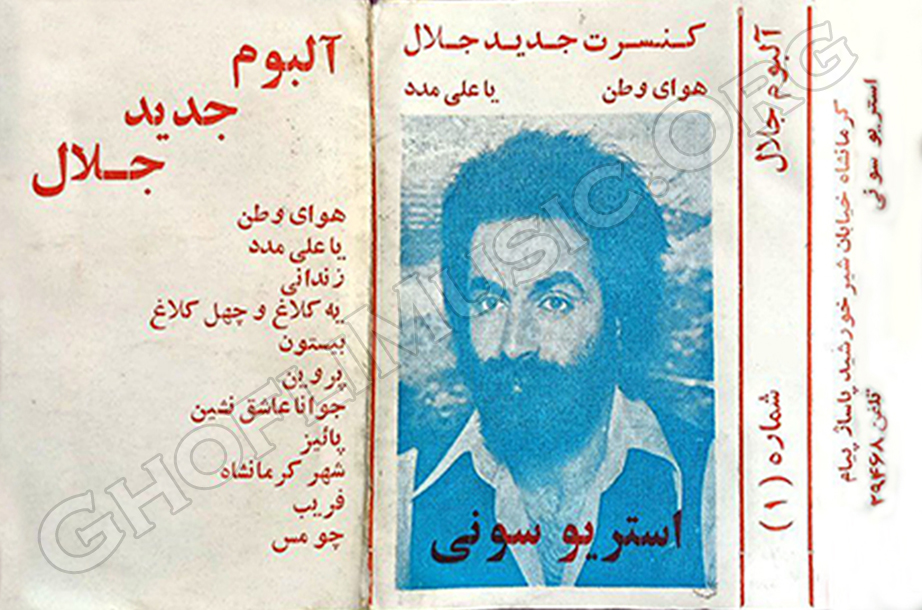 کنسرت جدید جلال
هوای وطن
یا علی مدد
استریو سونی
آلبوم
جدید
جلال
هوای وطن
یا علی مدد
زندانی
یه کلاغ و چهل کلاغ
بیستون
پروین
جوانا عاشق نشین
پائیز
شهر کرمانشاه
فریب
چو مس
آلبوم جلال
شماره (۱)
کرمانشاه خیابان شیر خورشید پاساژ پیام
استریو سونی
تلفن ۲۹۴۶۸
GHOFLIMUSIC.ORG